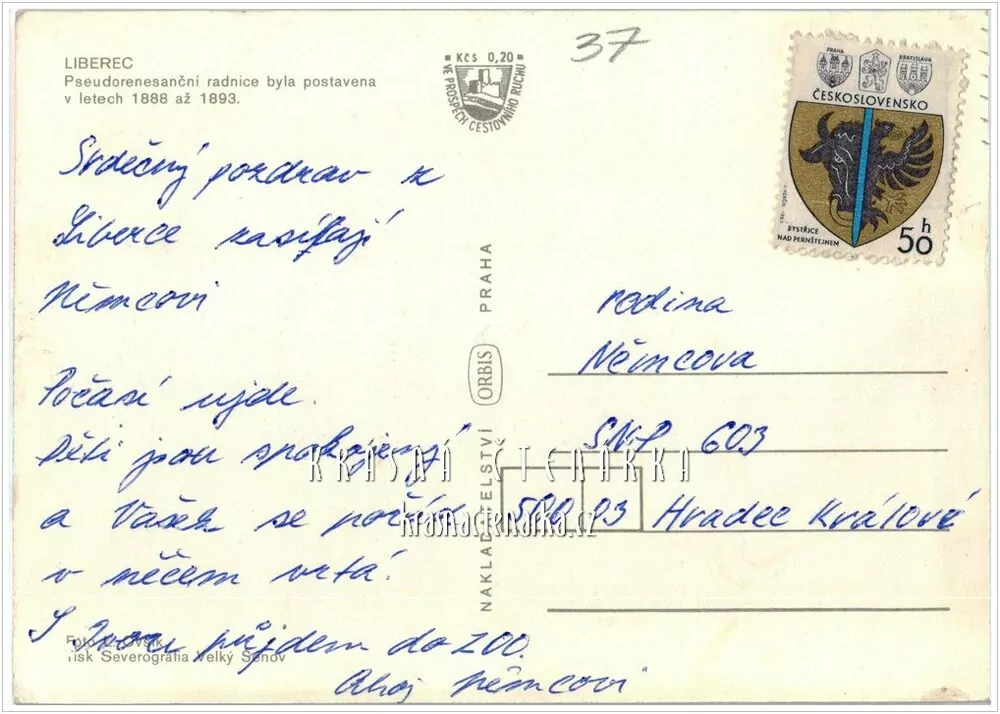 LIBEREC
Pseudorenesanční radnice byla postavena
v letech 1888 až 1893.
Kčs 0,20
VE PROSPĚCH CESTOVNÍHO RUCHU
37
PRAHA
BRATISLAVA
ČESKOSLOVENSKO
BYSTŘICE
NAD PERNŠTEJNEM
50 h
Srdečný pozdrav z
Liberce zasílají
Němcovi
Počasí ujde.
Děti jsou spokojený
a Vašek se pořád
v něčem vrtá.
půjdem do ZOO.
Ahoj Němcovi
Foto
Tisk Severografia Velký Šenov
NAKLADATELSTVÍ ORBIS PRAHA
rodina
Němcova
SNP 603
500 03 Hradec Králové
KRÁSNÁ ČTENÁŘKA
krasnactenarka.cz